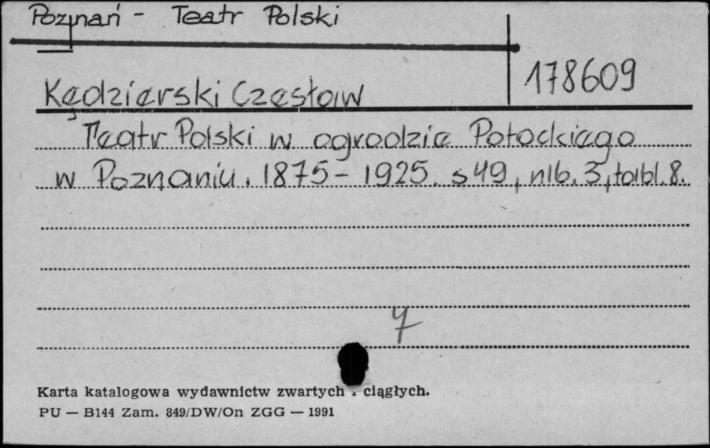 Poznań - Teatr Polski
178609
Kędzierski Czesław
Teatr Polski w ogrodzie Potockiego
w Poznaniu. 1875 - 1925. s 49, nlb. 3, tabl. 8.
7
Karta katalogowa wydawnictw zwartych i ciągłych.
PU — B144 Zam. 849/DW/On ZGG — 1991